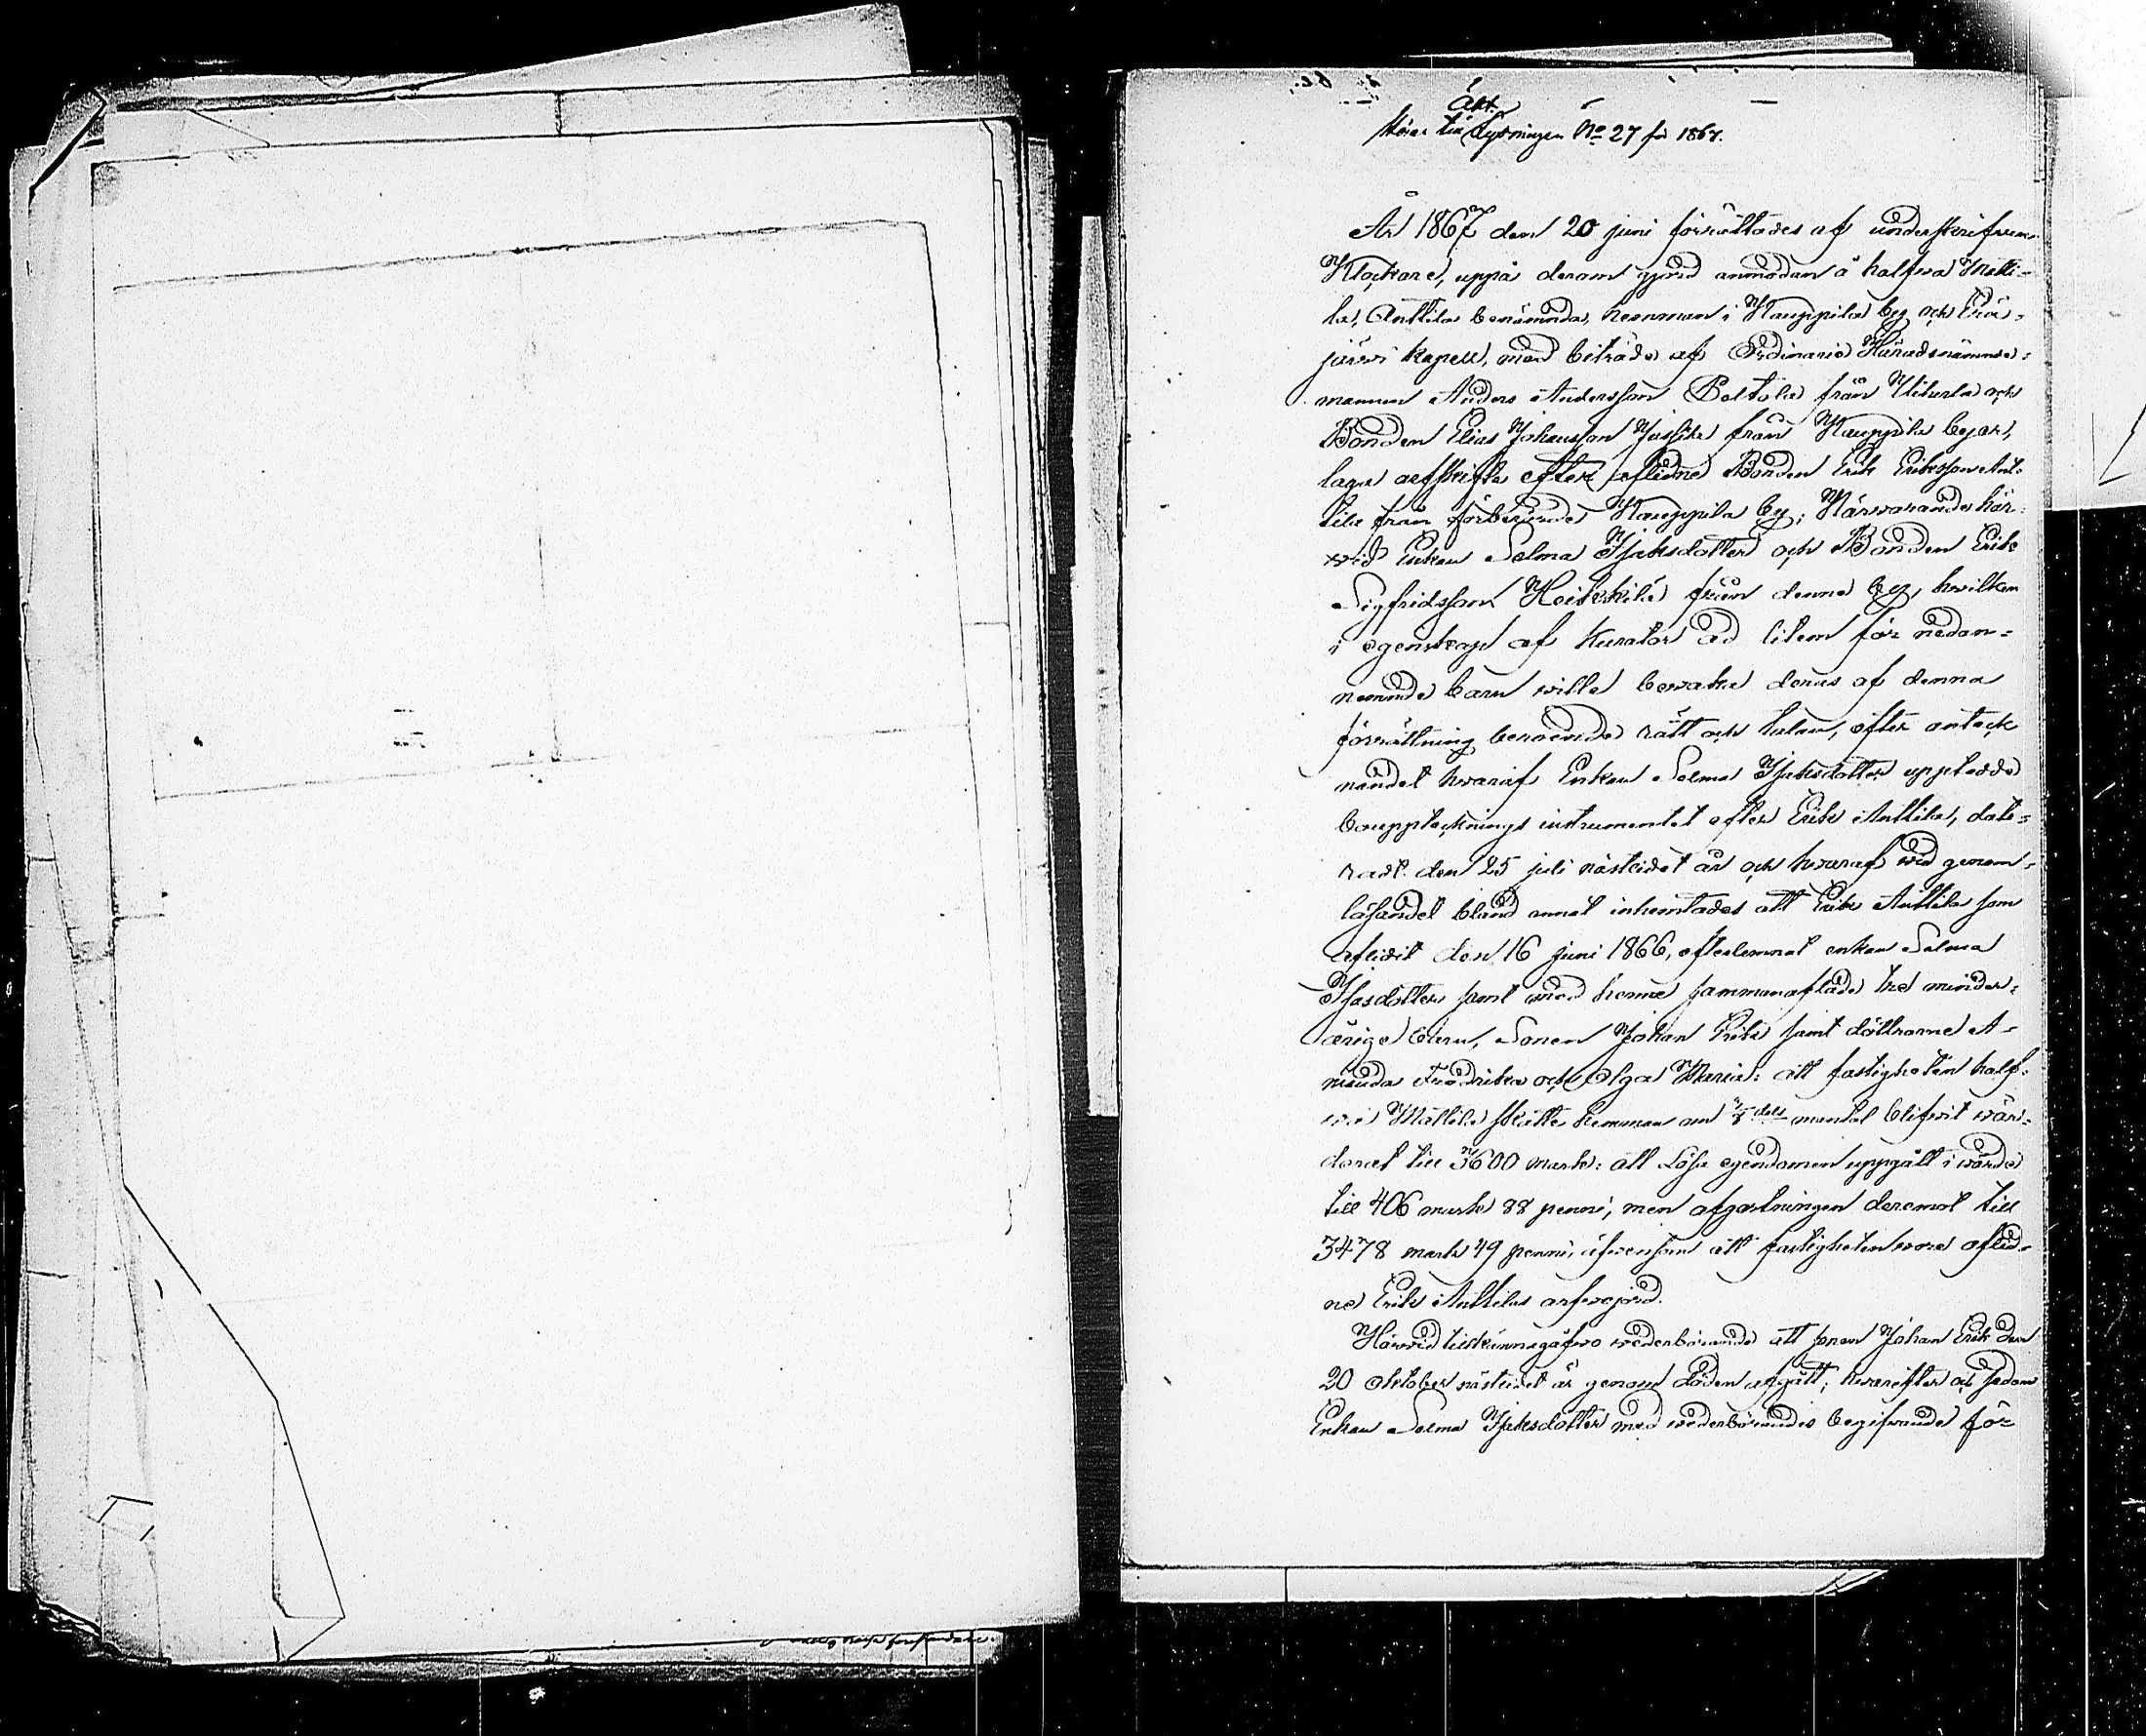 Akt.
Hörer till Lysningen No 27 för 1867.
År 1867 den 20 juni förrättades af underskrifven
Klockare, uppå derom gjord anmodan å halfwa Matti-
la, Anttila benämnda, hemman i Kauppila by och Erä-
järwi kapell, med biträde af Ordinarie Häradsnämnde-
mannen Anders Andersson Poltola från Uiherla och
Bonden Elias Johansson Jussila från Kauppila byar,
laga arfskifte efter aflidne Bonden Erik Eriksson Ant-
tila från förberörde Kauppila by; Närwarande här-
wid Enkan Selma Isaksdotter och Bonden Erik
Sigfridsson Heikkilä från denne by, hwilken
i egenskap af Kurator ad litem för nedan-
nemnde barn wille bewaka deras af denna
förrättning beroende rätt och talan, efter anteck
nandet hwaraf Enkan Selma Isaksdotter uppladde
bouppteknings instrumentet efter Erik Anttila, date-
radt den 25 juli nästlidet år och hwaraf wid genom-
läsandet bland annat inhemtades att Erik Anttila som
aflidit den 16 juni 1866, efterlemnat enkan Selma
Isasdotter samt med henne sammanaflade tre minder-
årige barn, Sonen Johan Erik samt döttrarne A-
manda Fredrika och Olga Maria: att fastigheten half-
wa Mattila skatte hemman om dels mantal blifwit wär-
derat till 3600 mark: att Lösa egendomen uppgått i wärde
till 406 mark 88 penni, men afgäldningen deremot till
3478 mark 49 penni, äfwensom att fastigheten wore aflid-
ne Erik Anttilas arfwejord.
Härwid tillkännagåfwo wederbörande att sonen Johan Erik den
20 oktober nästlidet år genom döden afgått; hwarefter och sedan
Enkan Selma Isaksdotter med wederbörandes begifwande för